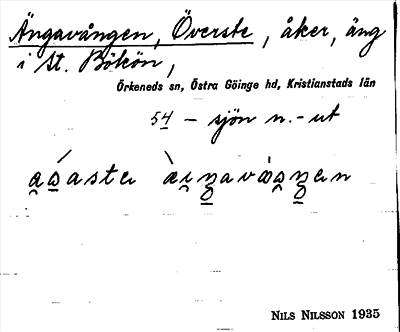 Ängavången, Överste, åker, äng
i St. Bökön,
Örkeneds sn, Östra Göinge hd, Kristianstads län
54 – sjön n.-ut
NILS NILSSON 1935